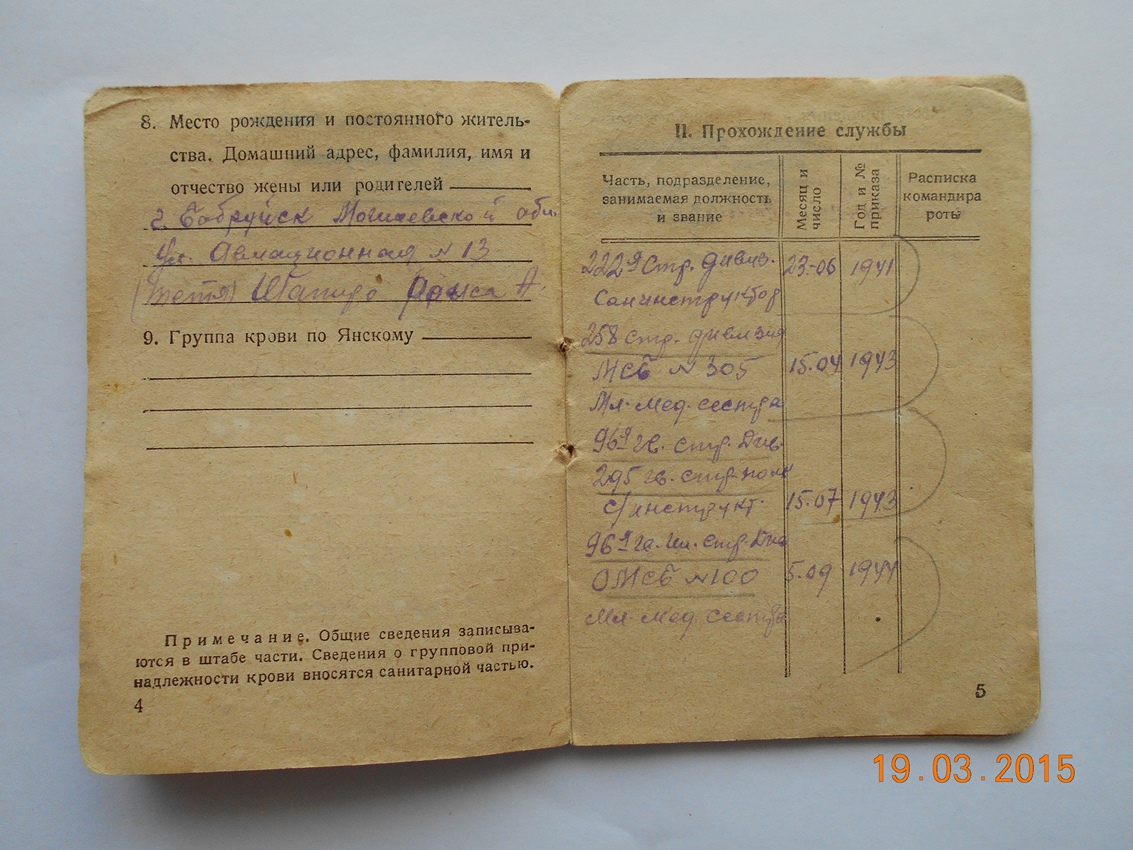 8. Место рождения и постоянного житель-
ства. Домашний адрес, фамилия, имя и
отчество жены или родителей
г. Бобруйск Могилевской обл.
Ул. Авиационная № 13
(тетя) Шапиро А.
9. Группа крови по Янскому
Примечание. Общие сведения записыва-
ются в штабе части. Сведения о групповой при-
надлежности крови вносятся санитарной частью.
4
II. Прохождение службы
Часть, подразделение, занимаемая должность и звание
Месяц и число
Год и № приказа
Расписка командира роты
222я Стр. дивиз. 23-06 1941
Санинструктор
258 стр. дивизия
МСБ № 305 15.04 1943
Мл. мед. сестра
96я гв. стр. Див.
295 гв. стр. полк
с/инструкт. 15.07 1943
96я гв. Ил. стр. Див
ОМСБ №100 5.09 1944
Мл. мед. сестра
5
19.03.2015